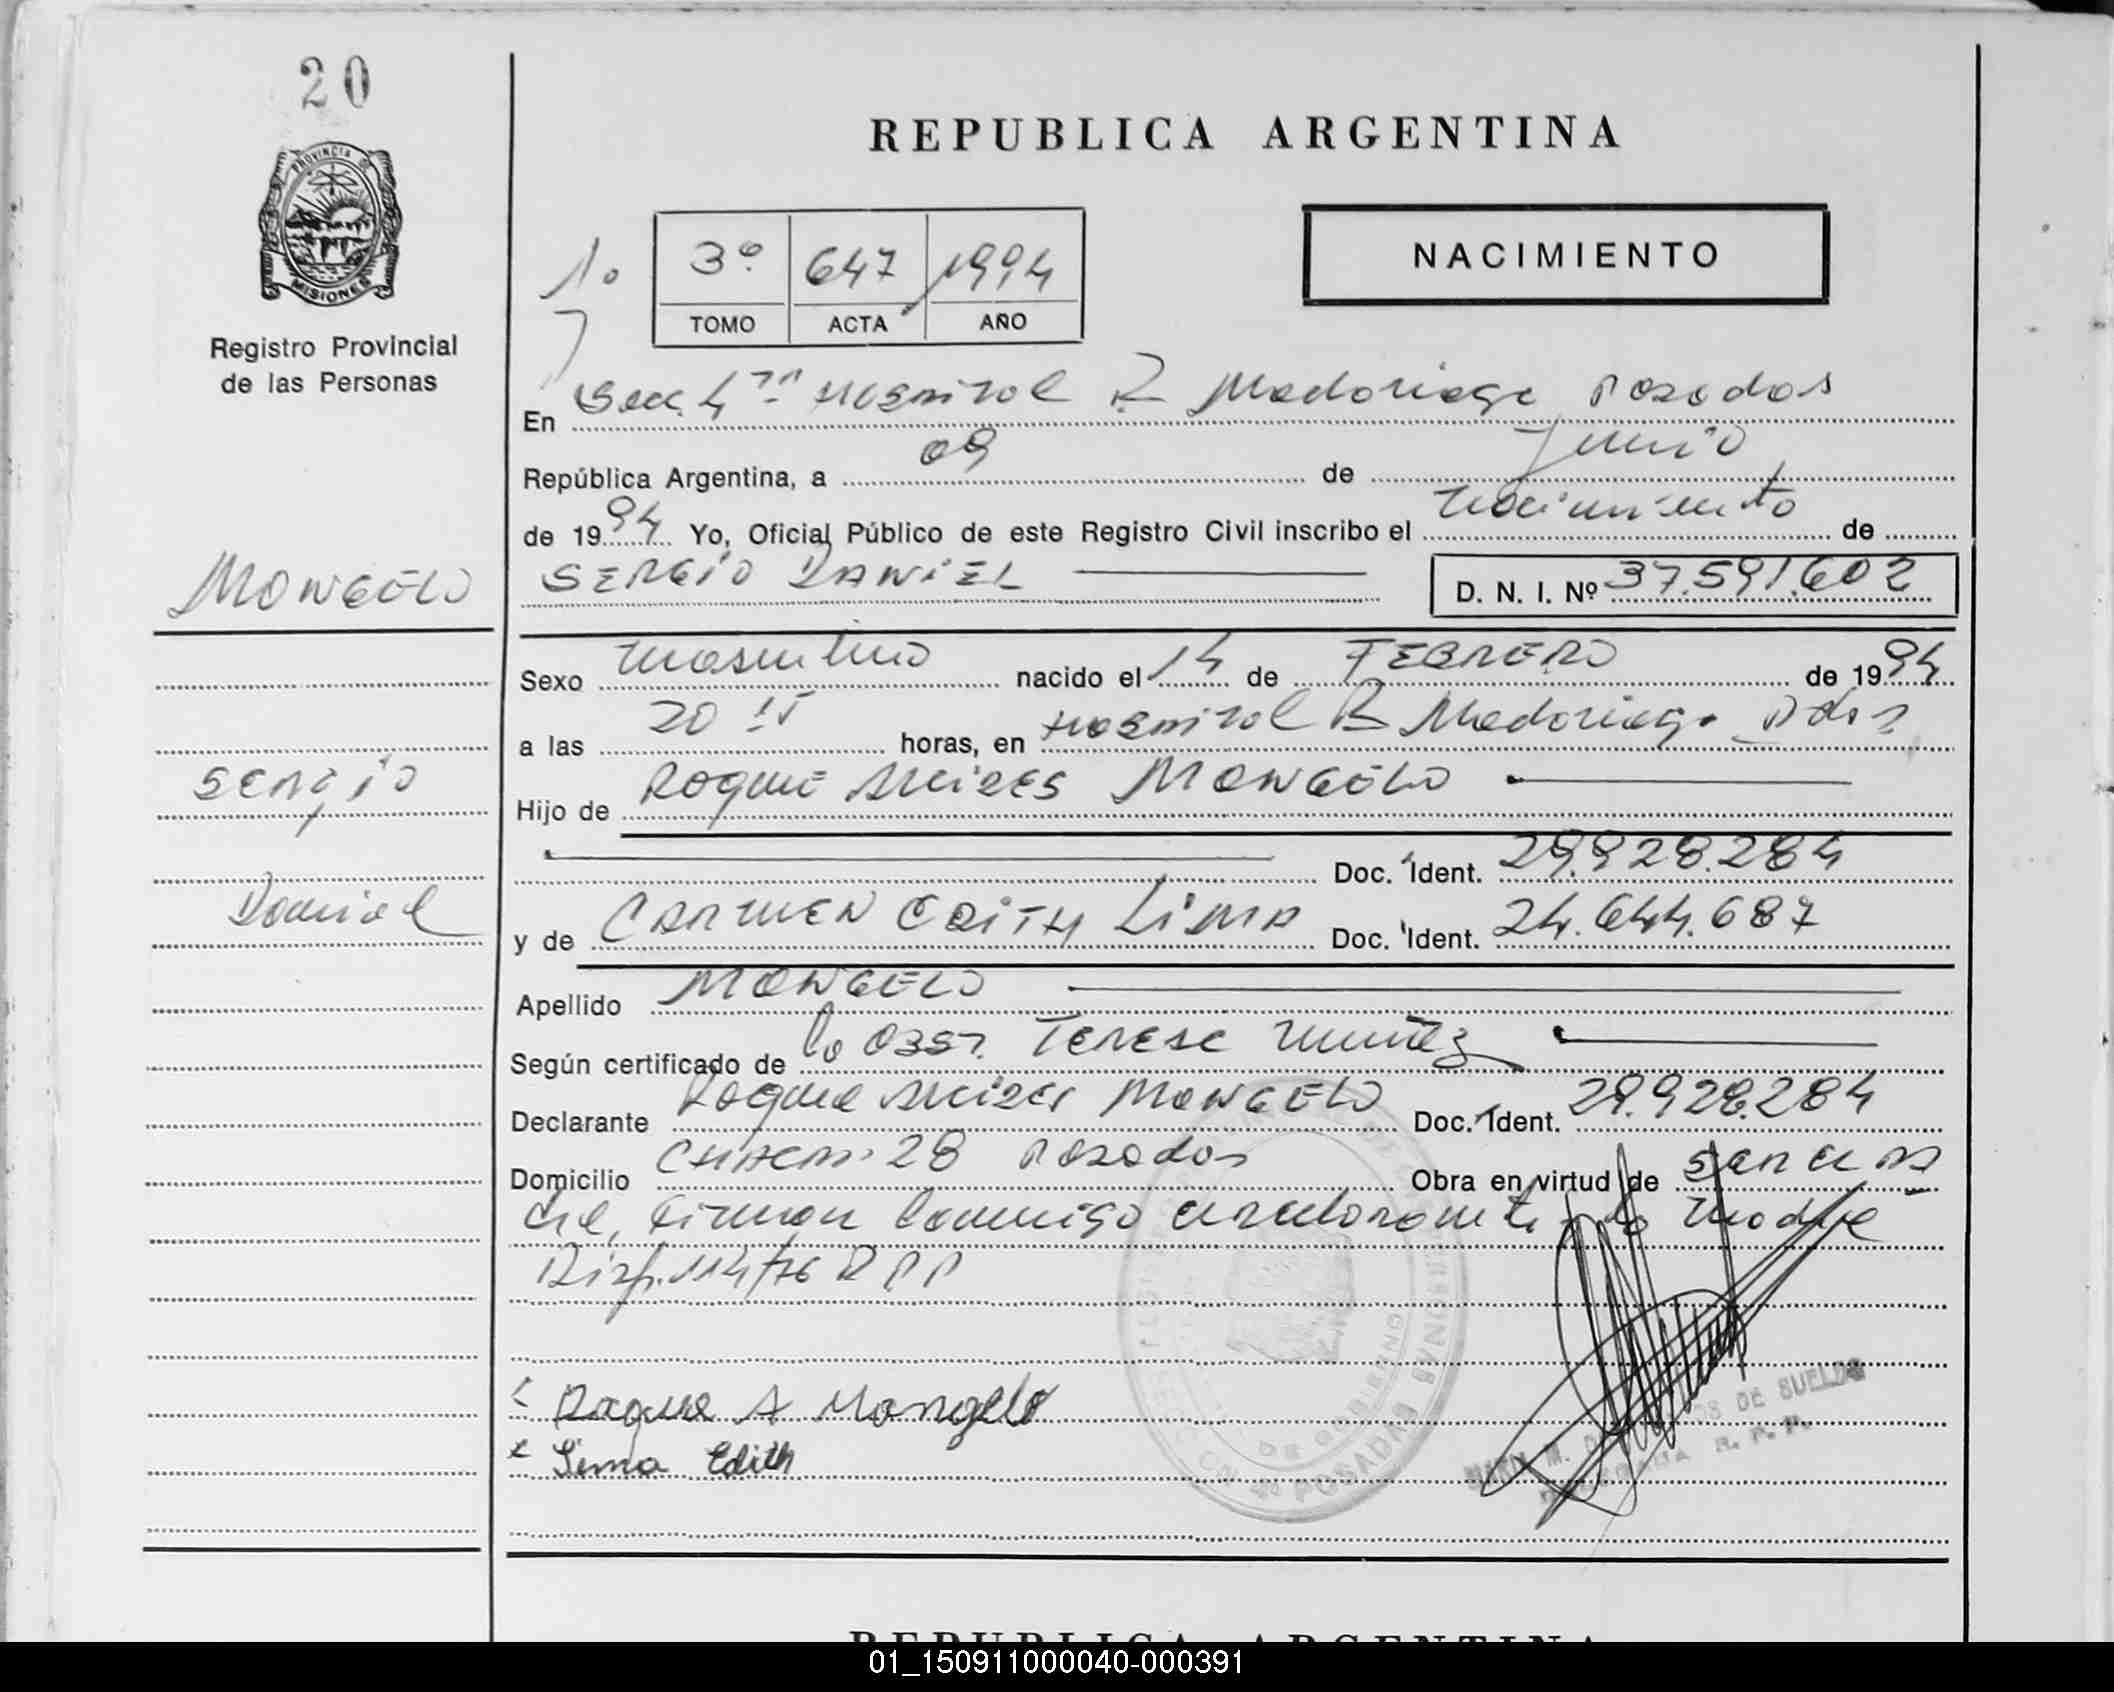 20
PROVINCIA DE
MISIONES
Registro Provincial
de las Personas
REPUBLICA ARGENTINA
NACIMIENTO
1º 3º 647 1994
TOMO ACTA AÑO
En Secc 4ta Hospital R Madariaga Posadas
República Argentina, a 09 de Junio
de 1994 Yo, Oficial Público de este Registro Civil inscribo el nacimiento de
SERGIO DANIEL D. N. I. Nº 37.591.602
MONGELO
Sexo masculino nacido el 14 de FEBRERO de 1994
a las 20 15 horas, en Hospital R Madariaga Pdas
Sergio
Hijo de Roque MONGELO
Doc. Ident. 29.928.284
Daniel
y de CARMEN EDITH LIMA Doc. Ident. 24.644.687
Apellido MONGELO
Según certificado de la Obst. Terese Nuñez
Declarante Roque MONGELO Doc. Ident. 29.928.284
Domicilio CHACRA 28 Posadas Obra en virtud de
firman conmigo declarante la madre
Disp. 114/76 R P P
Roque A Mongelo
Lima Edith
DE GOBIERNO
POSADAS
DE SUELDO
R. P. P.
REPUBLICA ARGENTINA
01_150911000040-000391